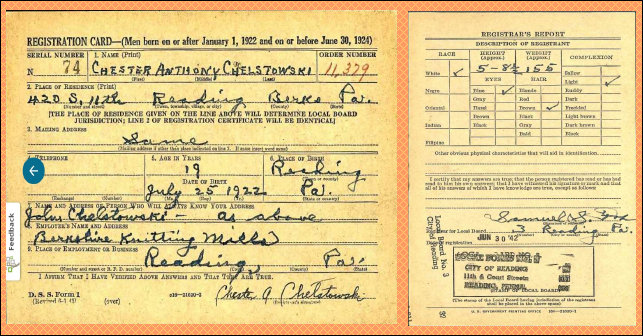 REGISTRATION CARD—(Men born on or after January 1, 1922 and on or before June 30, 1924)
SERIAL NUMBER 1. NAME (Print) ORDER NUMBER
N 74 CHESTER ANTHONY CHELSTOWSKI 11,379
(First) (Middle) (Last)
2. PLACE OF RESIDENCE (Print)
420 S. 11th Reading Berks Pa.
(Number and street) (Town, township, village, or city) (County) (State)
[THE PLACE OF RESIDENCE GIVEN ON THE LINE ABOVE WILL DETERMINE LOCAL BOARD
JURISDICTION; LINE 2 OF REGISTRATION CERTIFICATE WILL BE IDENTICAL]
3. MAILING ADDRESS
Same
[Mailing address if other than place indicated on line 2. If same insert word same]
4. TELEPHONE 5. AGE IN YEARS 6. PLACE OF BIRTH
19 Reading
DATE OF BIRTH (Town or county)
July 25 1922 Pa.
(Exchange) (Number) (Mo.) (Day) (Yr.) (State or country)
7. NAME AND ADDRESS OF PERSON WHO WILL ALWAYS KNOW YOUR ADDRESS
John Chelstowski - as above
8. EMPLOYER'S NAME AND ADDRESS
Berkshire Knitting Mills
9. PLACE OF EMPLOYMENT OR BUSINESS
Reading, Pa.
(Number and street or R. F. D. number) (Town) (County) (State)
I AFFIRM THAT I HAVE VERIFIED ABOVE ANSWERS AND THAT THEY ARE TRUE.
D. S. S. Form 1
(over) Chester A Chelstowski
Feedback
REGISTRAR'S REPORT
DESCRIPTION OF REGISTRANT
RACE HEIGHT (Approx.) WEIGHT (Approx.) COMPLEXION
5-8½ 155
White ✓ Sallow
EYES HAIR Light ✓
Negro Blue ✓ Blonde Ruddy
Gray Red Dark
Oriental Hazel Brown ✓ Freckled
Brown Black Light brown
Indian Black Gray Dark brown
Bald Black
Filipino
Other obvious physical characteristics that will aid in identification
I certify that my answers are true; that the person registered has read or has had
read to him his own answers; that I have witnessed his signature or mark and that
all of his answers of which I have knowledge are true, except as follows:
Registrar for Local Board 3 Reading Pa.
JUN 30 '42
Local Board No. 3
City of Reading
LOCAL BOARD NO. 3
CITY OF READING
11th & Court Streets
READING, PENNA.
(STAMP OF LOCAL BOARD)
(The stamp of the Local Board having jurisdiction of the registrant
shall be placed in the above space)
U. S. GOVERNMENT PRINTING OFFICE